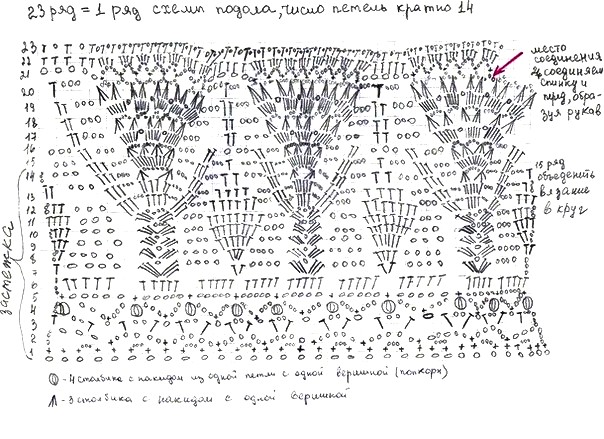 23 ряд = 1 ряд схемы подола, число петель кратно 14
место
соединения
соединяем
спинку и
перед, обра-
зуя рукав
23
22
21
20
19
18
17
16
15
14
13
12
11
10
9
8
7
6
5
4
3
2
1
15 ряд
объеденить
вязание
в круг
застежка
- 4 столбика с накидом из одной петли с одной вершиной (попкорн)
- 3 столбика с накидом с одной вершиной